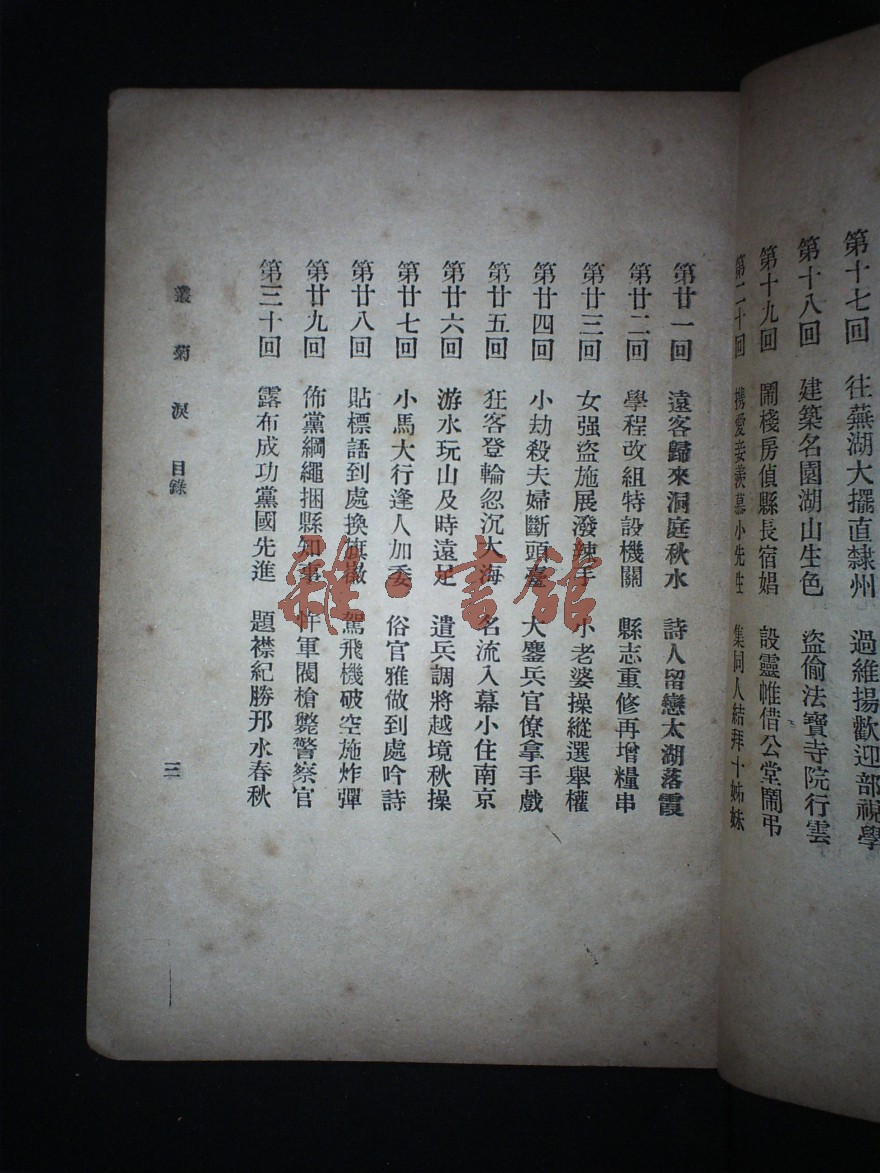 第十七回　往蕪湖大擺直隸州　過維揚歡迎部視學
第十八回　建築名園湖山生色　盜偷法寶寺院行雲
第十九回　鬧棧房偵縣長宿娼　設靈帷借公堂鬧弔
第二十回　携愛妾羨慕小先生　集同人結拜十姊妹
第廿一回　遠客歸來洞庭秋水　詩人留戀太湖落霞
第廿二回　學程改組特設機關　縣志重修再增糧串
第廿三回　女强盜施展潑辣手　小老婆操縱選舉權
第廿四回　小劫殺夫婦斷頭臺　大鏖兵官僚拿手戲
第廿五回　狂客登輪忽沉大海　名流入幕小住南京
第廿六回　游水玩山及時遠足　遣兵調將越境秋操
第廿七回　小馬大行逢人加委　俗官雅做到處吟詩
第廿八回　貼標語到處換旗徽　駕飛機破空施炸彈
第廿九回　佈黨綱繩捆縣知事　忤軍閥槍斃警察官
第三十回　露布成功黨國先進　題襟紀勝邗水春秋
叢菊淚　目錄
三
雜·書館